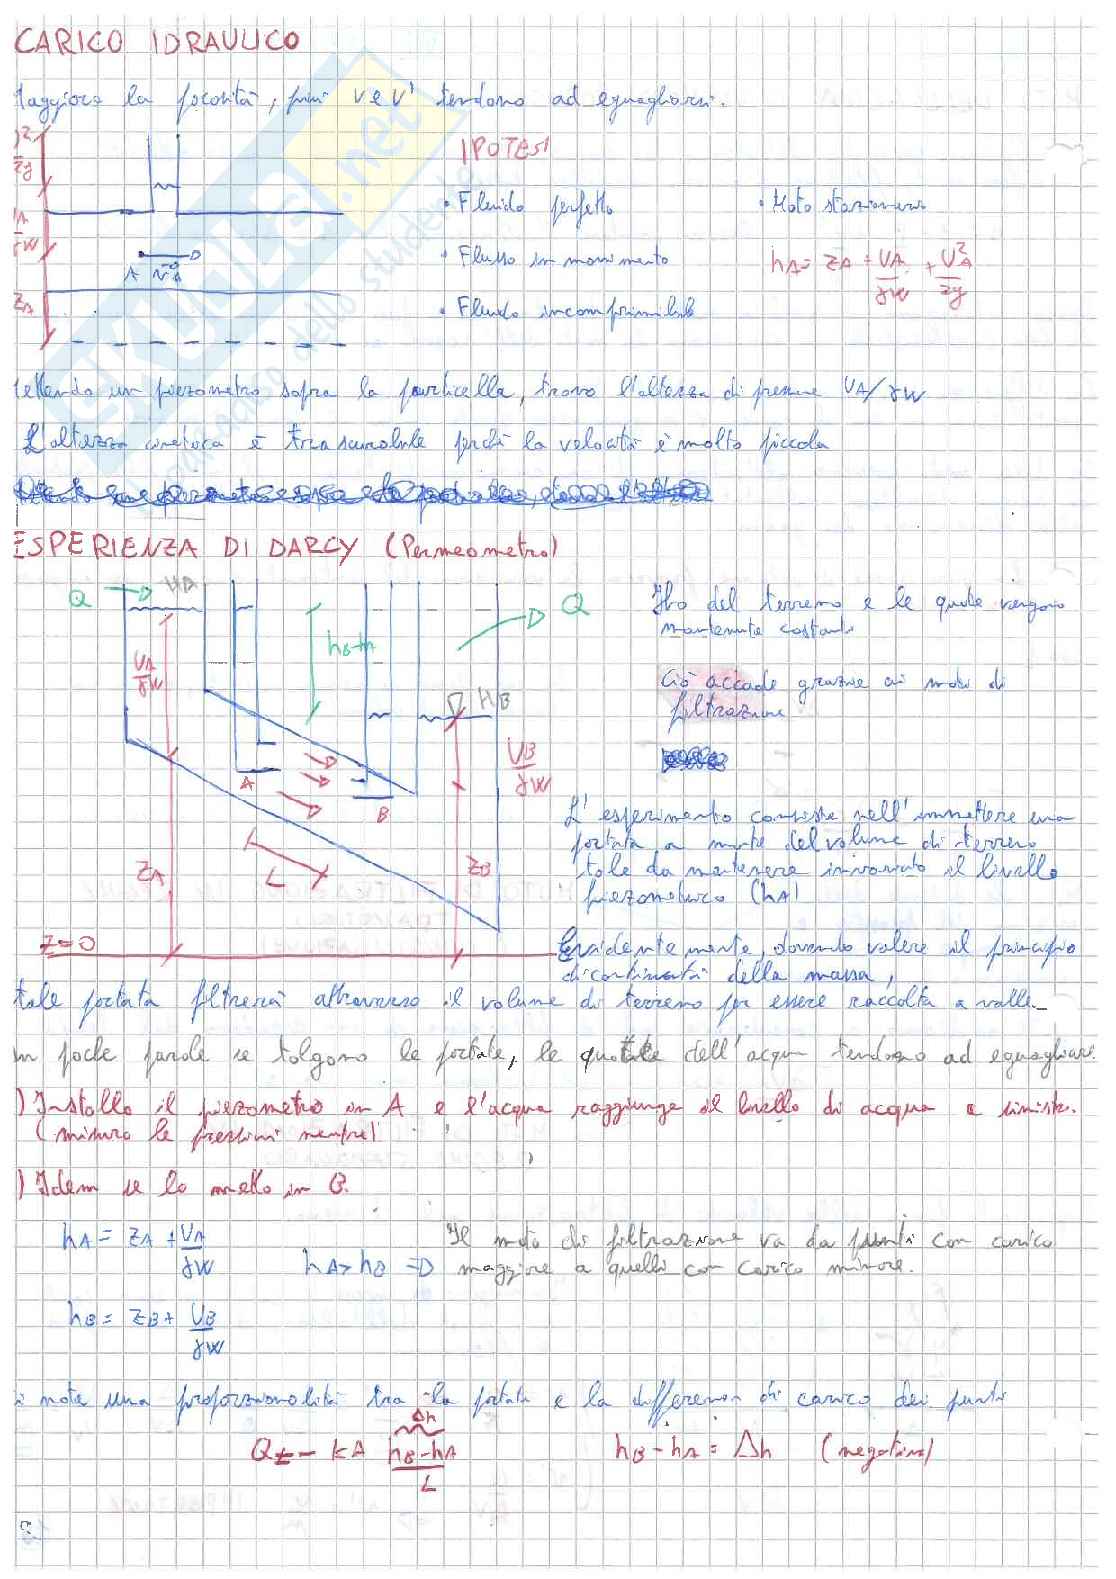 CARICO IDRAULICO
Maggiore la porosità, più v e v' tendono ad eguagliarsi.
IPOTESI
• Fluido perfetto
• Moto stazionario
• Flusso in movimento
hA = zA + UA/γW + VA²/2g
• Fluido incomprimibile
2g
UA/γW
zA
A vA
SKUOLA.net
dello studente
Mettendo un piezometro sopra la particella, trovo l'altezza di pressione UA/γW
L'altezza cinetica è trascurabile perchè la velocità è molto piccola
ESPERIENZA DI DARCY (Permeometro)
Q HA
Q
hB-hA
UA/γW
HB
UB/γW
A
B
zA
L
zB
z=0
del terreno e le quote vengono
mantenute costanti
Ciò accade grazie ai moti di
filtrazione
L'esperimento consiste nell'immettere una
portata a monte del volume di terreno
tale da mantenere invariato il livello
piezometrico (hA)
Evidentemente, dovendo valere il principio
di continuità della massa,
tale portata filtrerà attraverso il volume di terreno per essere raccolta a valle.
In poche parole se tolgono le portate, le quote dell'acqua tendono ad eguagliarsi.
) Installo il piezometro in A e l'acqua raggiunge il livello di acqua a sinistra.
(misuro le pressioni neutre)
) Idem se lo metto in B.
hA = zA + UA/γW
Il moto di filtrazione va da punti con carico
hA > hB => maggiore a quelli con carico minore.
hB = zB + UB/γW
Si nota una proporzionalità tra la portata e la differenza di carico dei punti
Δh
Q = - kA hB-hA/L
hB - hA = Δh (negativa)